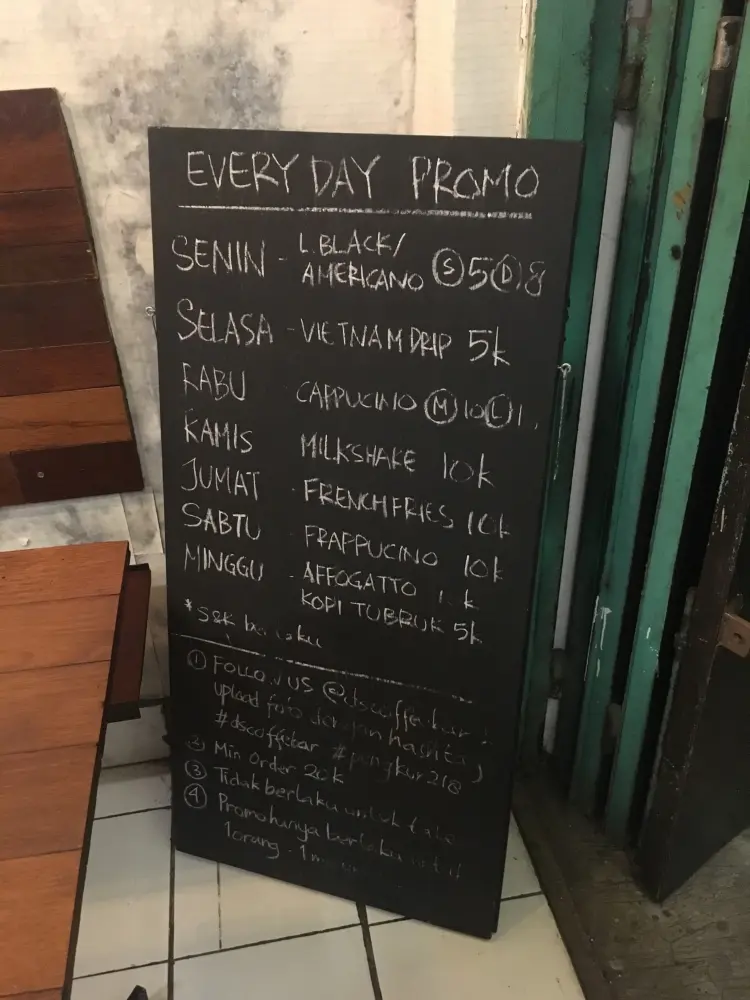 EVERY DAY PROMO
SENIN - L.BLACK/
AMERICANO Ⓢ5 Ⓓ8
SELASA - VIETNAM DRIP 5k
RABU CAPPUCINO Ⓜ10 Ⓛ
KAMIS MILKSHAKE 10k
JUMAT - FRENCH FRIES 10k
SABTU - FRAPPUCINO 10k
MINGGU - AFFOGATTO
KOPI TUBRUK 5k
*S&K berlaku
① FOLLOW US @dscoffeebar
upload foto dengan hashtag
#dscoffebar #pungkur218
② Min Order 20k
③ Tidak berlaku untuk take
④ Promo hanya berlaku untuk
1 orang - 1